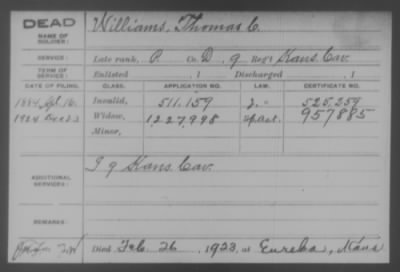 DEAD
NAME OF SOLDIER:
Williams, Thomas C.
SERVICE:
Late rank, P. Co. D, 9 Reg't Kans. Cav.
TERM OF SERVICE:
Enlisted , 1 Discharged , 1
DATE OF FILING. CLASS. APPLICATION NO. LAW. CERTIFICATE NO.
1884 Apl. 16. Invalid, 511.159 525,259
1924 Dec 23 Widow, 1,227,998 957885
Minor,
ADDITIONAL SERVICES:
I 9 Kans. Cav.
REMARKS:
Died Feb. 26, 1923, at Eureka, Kans